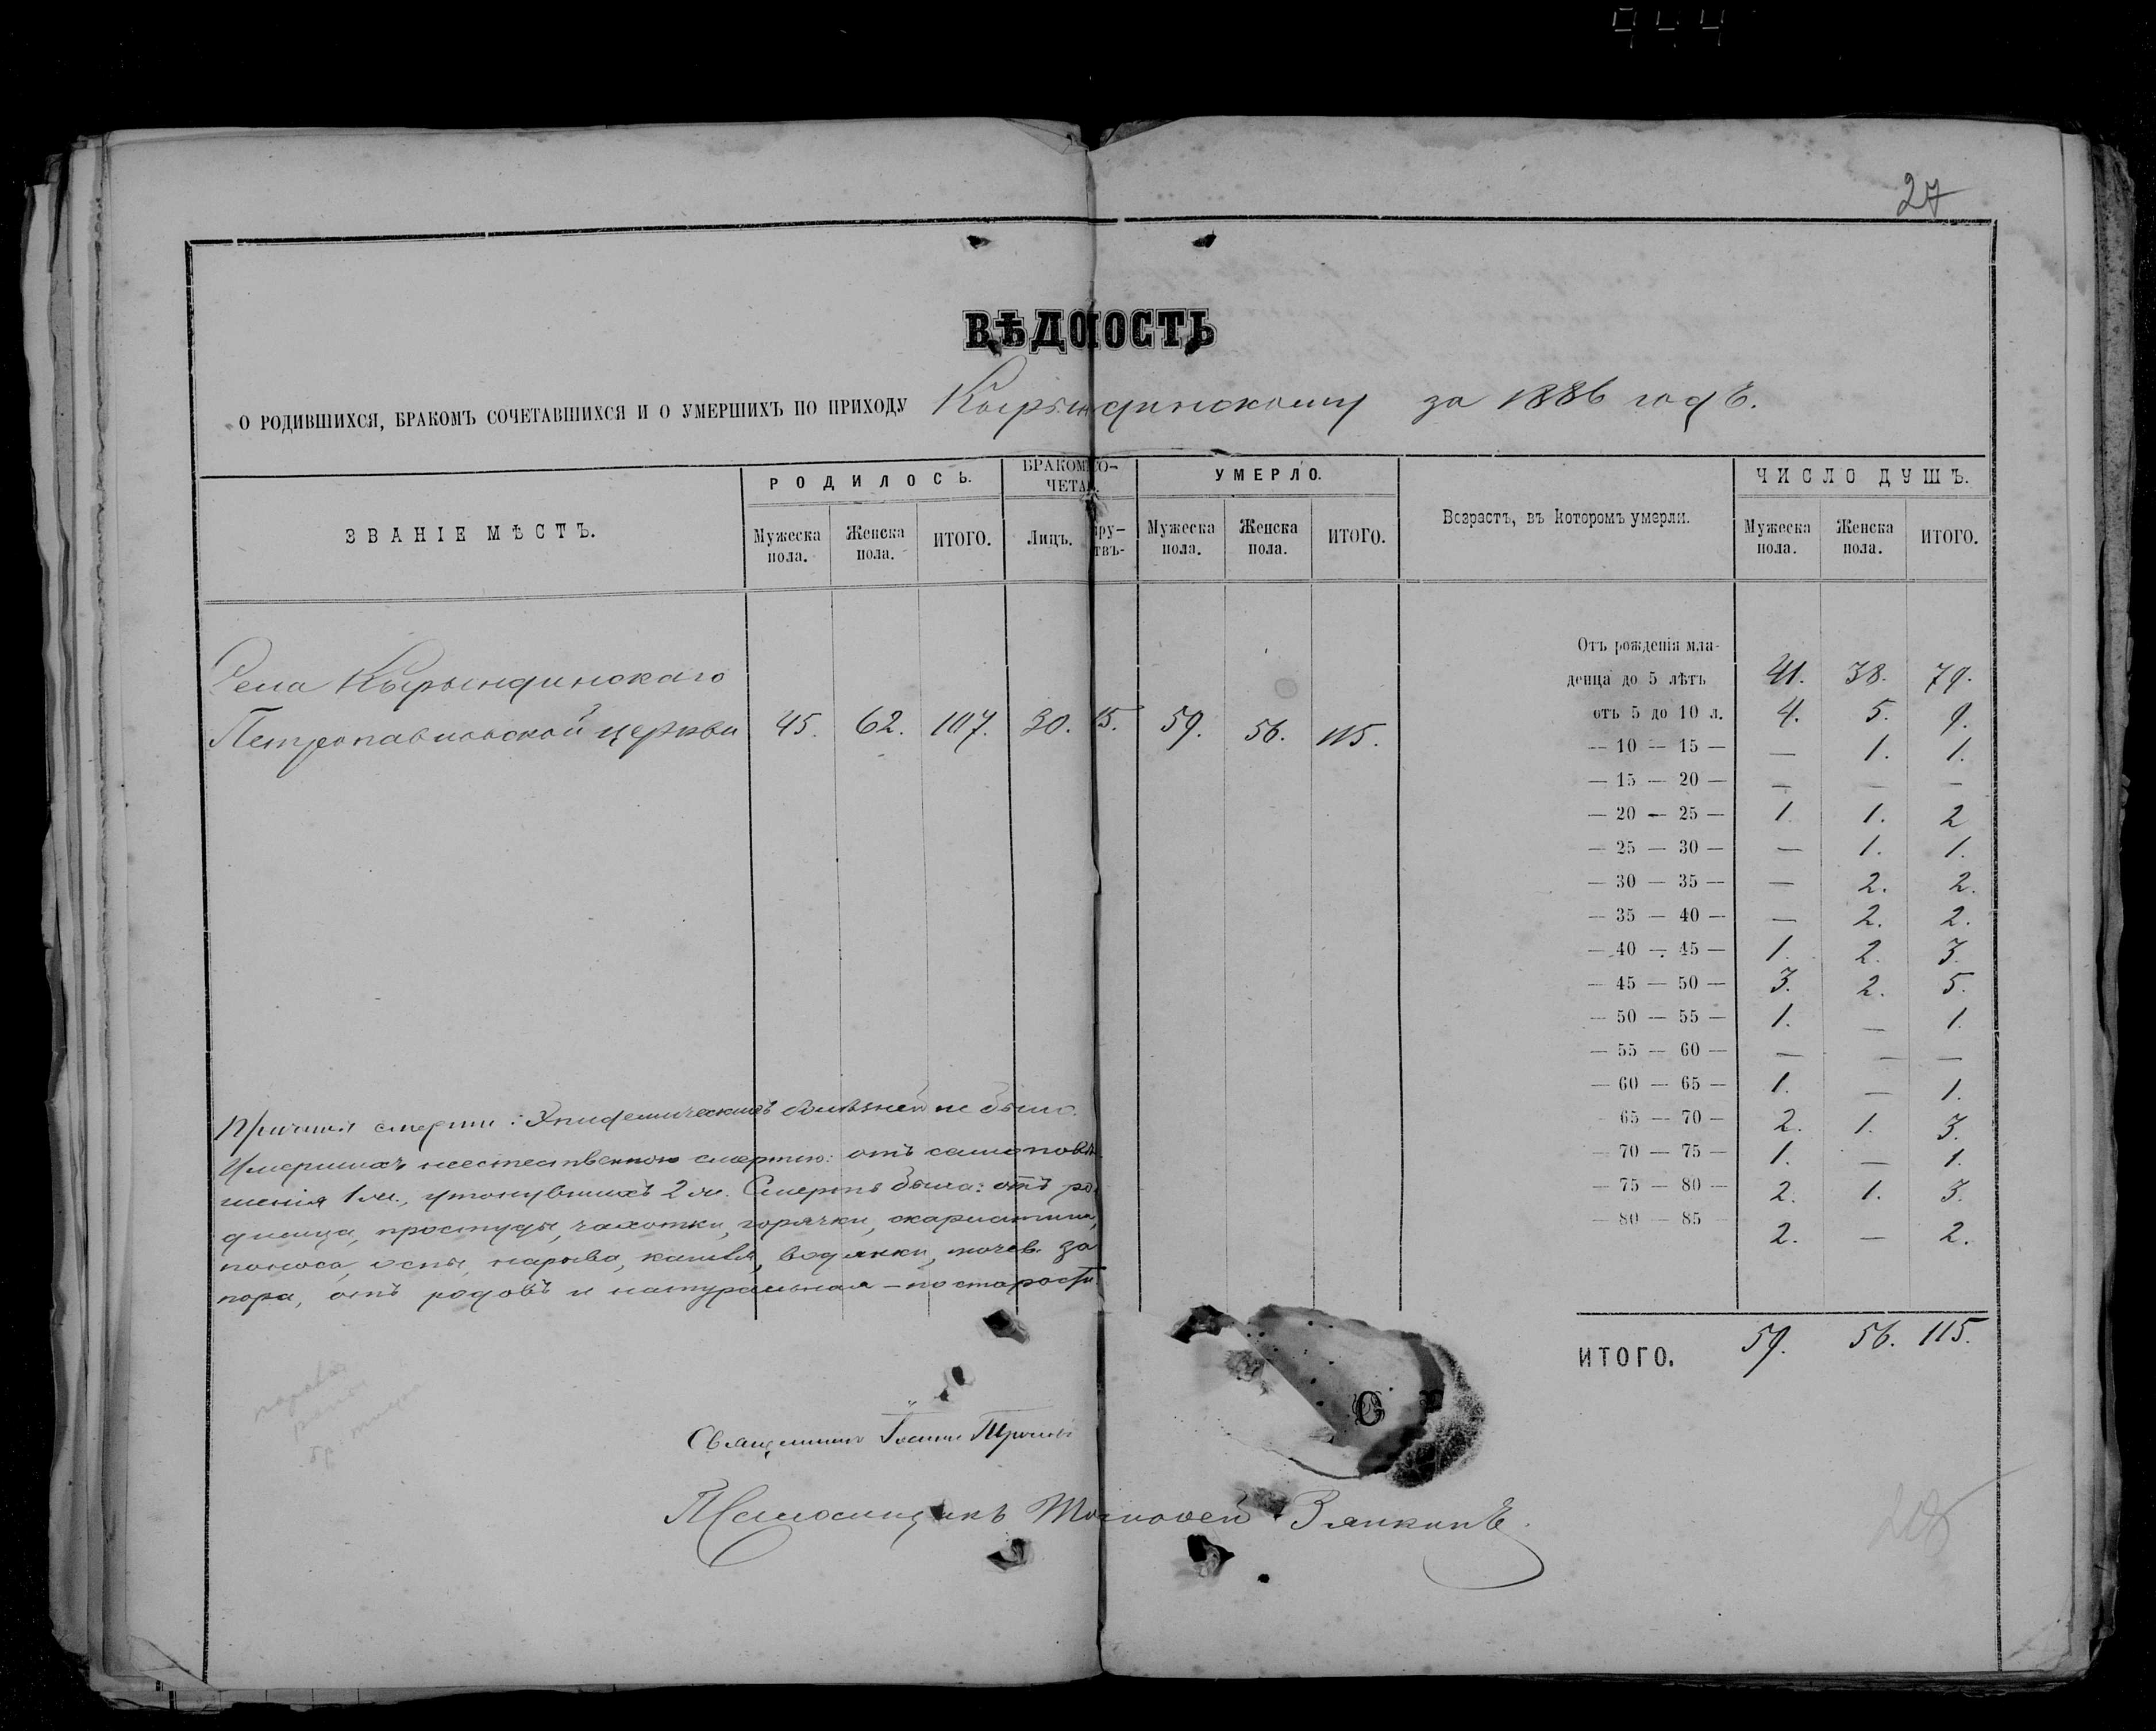 27
ВѢДОМОСТЬ
О РОДИВШИХСЯ, БРАКОМЪ СОЧЕТАВШИХСЯ И О УМЕРШИХЪ ПО ПРИХОДУ Кырындинскому за 1886 годъ.
ЗВАНІЕ МѢСТЪ. РОДИЛОСЬ. БРАКОМЪ СО- УМЕРЛО. Возрастъ, въ которомъ умерли. ЧИСЛО ДУШЪ.
ЧЕТАЛ.
Мужеска Женска ИТОГО. Лицъ. Мужеска Женска ИТОГО. Мужеска Женска ИТОГО.
пола. пола. пола. пола. пола. пола.
Отъ рожденія мла-
Села Кырындинскаго денца до 5 лѣтъ 41. 38. 79.
Петропавловской церкви 45. 62. 107. 30. 15. 59. 56. 115. отъ 5 до 10 л. 4. 5. 9.
— 10 — 15 — — 1. 1.
— 15 — 20 — — — —
— 20 — 25 — 1 1. 2
— 25 — 30 — — 1. 1.
— 30 — 35 — — 2. 2.
— 35 — 40 — — 2. 2.
— 40 — 45 — 1. 2. 3.
— 45 — 50 — 3. 2. 5.
— 50 — 55 — 1. — 1.
— 55 — 60 — — — —
— 60 — 65 — 1. — 1.
65 — 70 — 2. 1. 3.
— 70 — 75 — 1. — 1.
— 75 — 80 — 2. 1. 3.
— 80 — 85 2. — 2.
Причина смерти: Эпидемическихъ болѣзней не было.
Умершихъ неестественною смертію: отъ самоповѣ
шенія 1 м., утонувшихъ 2 м. Смерть была: отъ ро
димца, простуды, чахотки, горячки, скарлатины,
поноса, оспы, нарыва, кашля, водянки, мочев. за
пора, отъ родовъ и натуральная — по старости.
ИТОГО. 59. 56. 115.
Священникъ Іоаннъ
Псаломщикъ